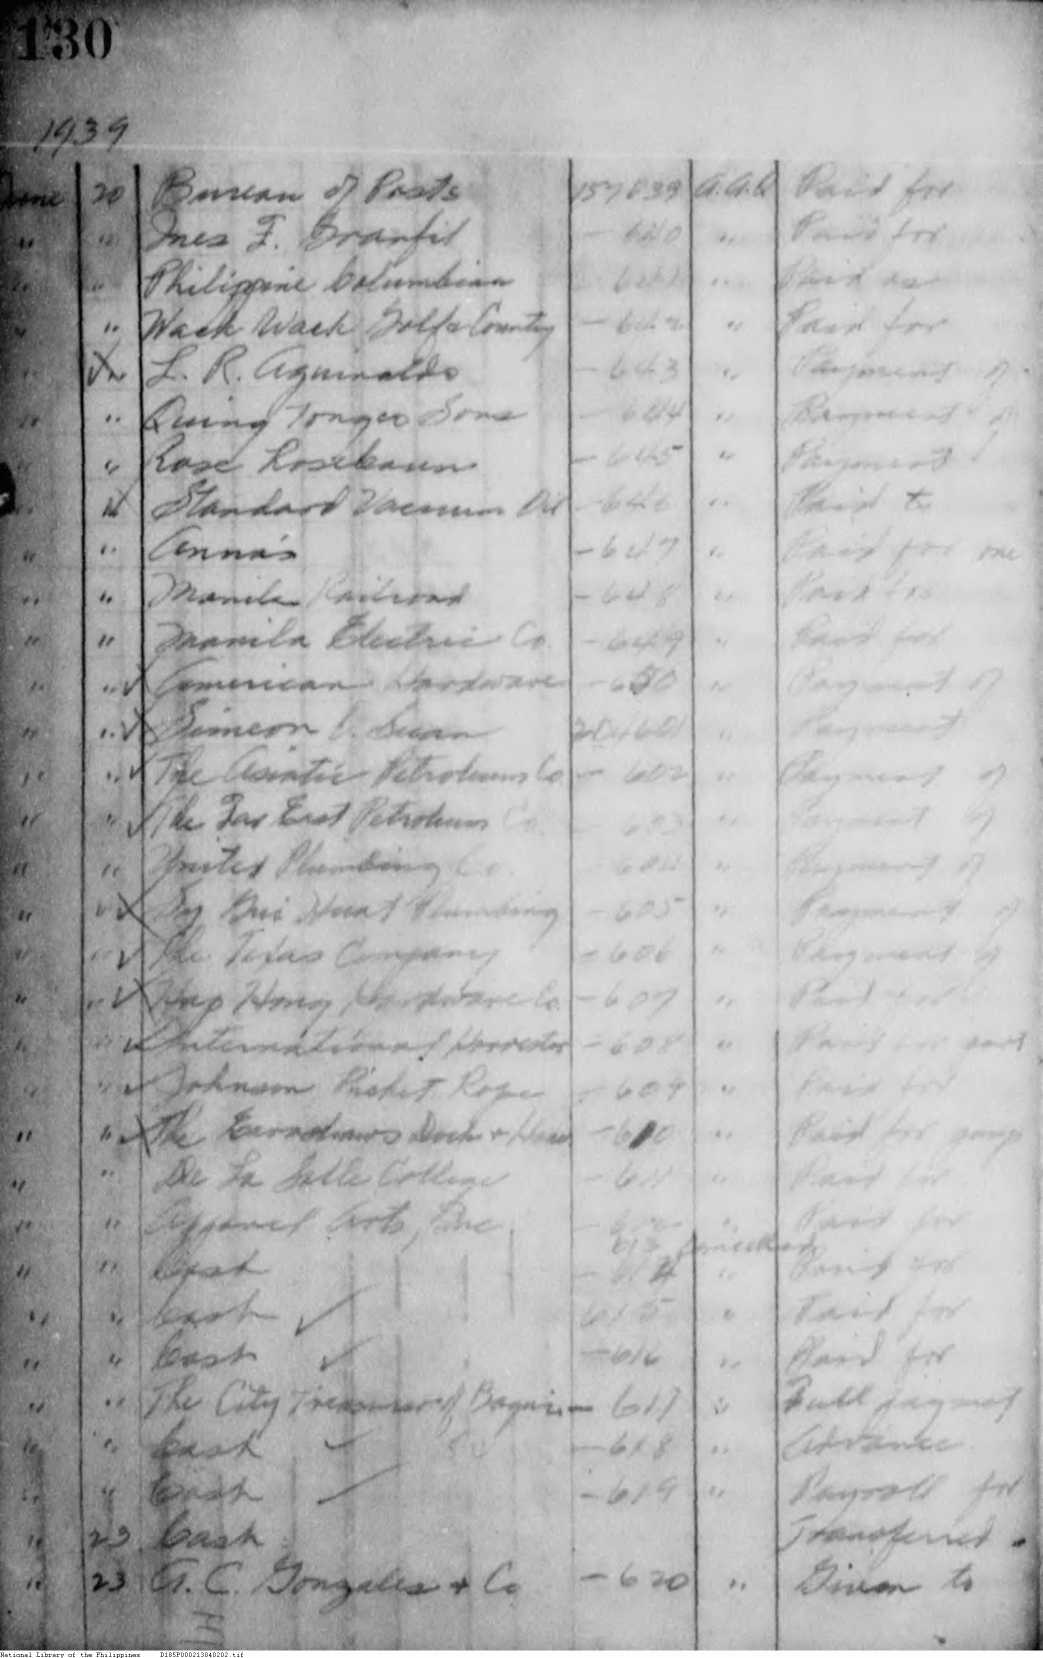 130
1939
June 20 Bureau of Posts 157039 A.A.A Paid for
" " Ines F. - 640 " Paid for
" " Philippine Columbian 641 " Paid as
" " Wack Wack Golf & Country - 642 " Paid for
" " L. R. Aguinaldo - 643 " Payment of
" " Sons - 644 " Payment of
" " Rose - 645 " Payment
" " Standard Vacuum Oil - 646 " Paid to
" " Anna's - 647 " Paid for one
" " Manila Railroad - 648 " Paid for
" " Manila Electric Co. - 649 " Paid for
" " ✓ American Hardware - 650 " Payment of
" " ✓ Simeon 601 " Payment
" " ✓ The Asiatic Petroleum Co - 602 " Payment of
" " ✓ The Far East Petroleum Co. 603 " Payment of
" " United Plumbing Co. - 604 " Payment of
" " Plumbing - 605 " Payment of
" " ✓ The Texas Company - 606 " Payment of
" " ✓ Hap Hong Hardware Co. - 607 " Paid for
" " ✓ International Harvester - 608 " Paid for part
" " ✓ Johnson Picket Rope - 609 " Paid for
" " ✓ The Earnshaws Dock & - 610 " Paid for
" " De La Salle College - 611 " Paid for
" " Apparel Arts, Inc. - 612 " Paid for
613 Cancelled
" " Cash - 614 " Paid for
" " Cash ✓ 615 " Paid for
" " Cash ✓ - 616 " Paid for
" " The City Treasurer of Baguio - 617 " Full payment
" " Cash ✓ - 618 " Advance
" " Cash ✓ - 619 " Payroll for
" 23 Cash Transferred
" 23 A. C. Gonzales & Co - 620 " Given to
National Library of the Philippines D185P000213840202.tif